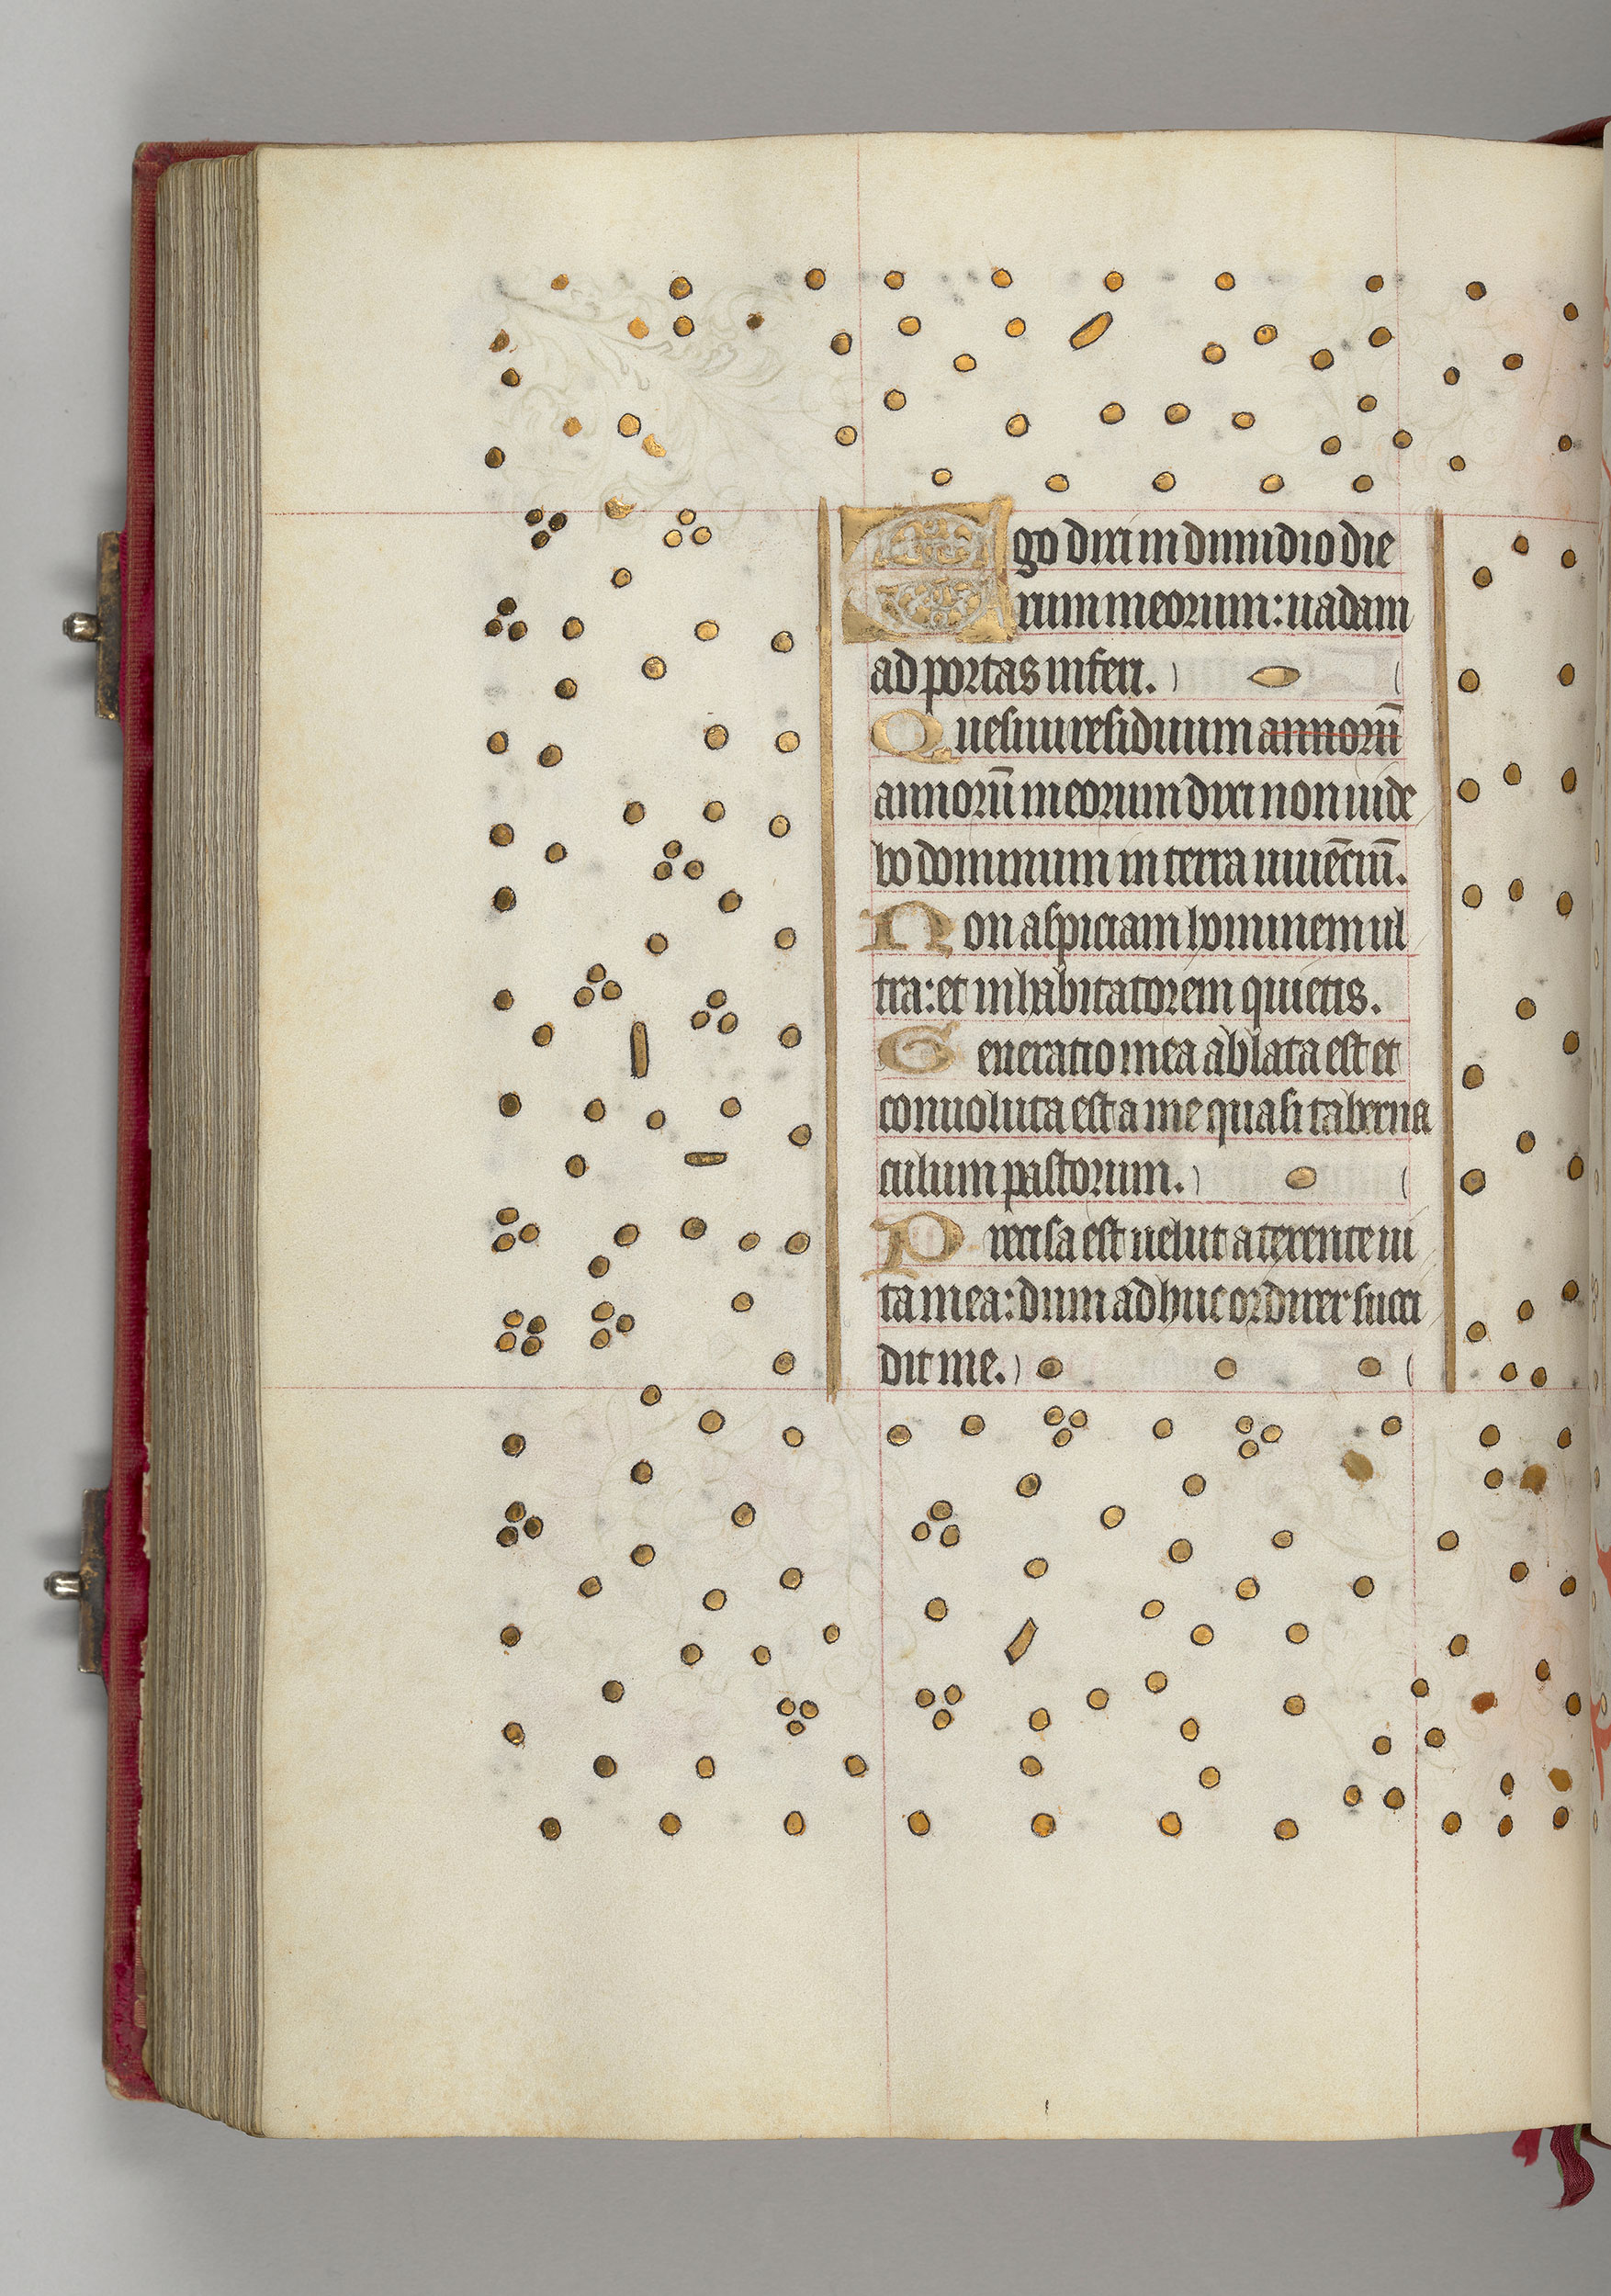 Ego dixi in dimidio die
rum meorum: uadam
ad portas inferi.
Quesiui residuum annorū
annorū meorum dixi non uide
bo dominum in terra uiuēciū.
Non aspiciam hominem ul
tra: et inhabitatorem quietis.
Generatio mea ablata est et
conuoluta est a me quasi taberna
culum pastorum.
Precisa est uelut a texente ui
ta mea: dum adhuc ordirer succi
dit me.